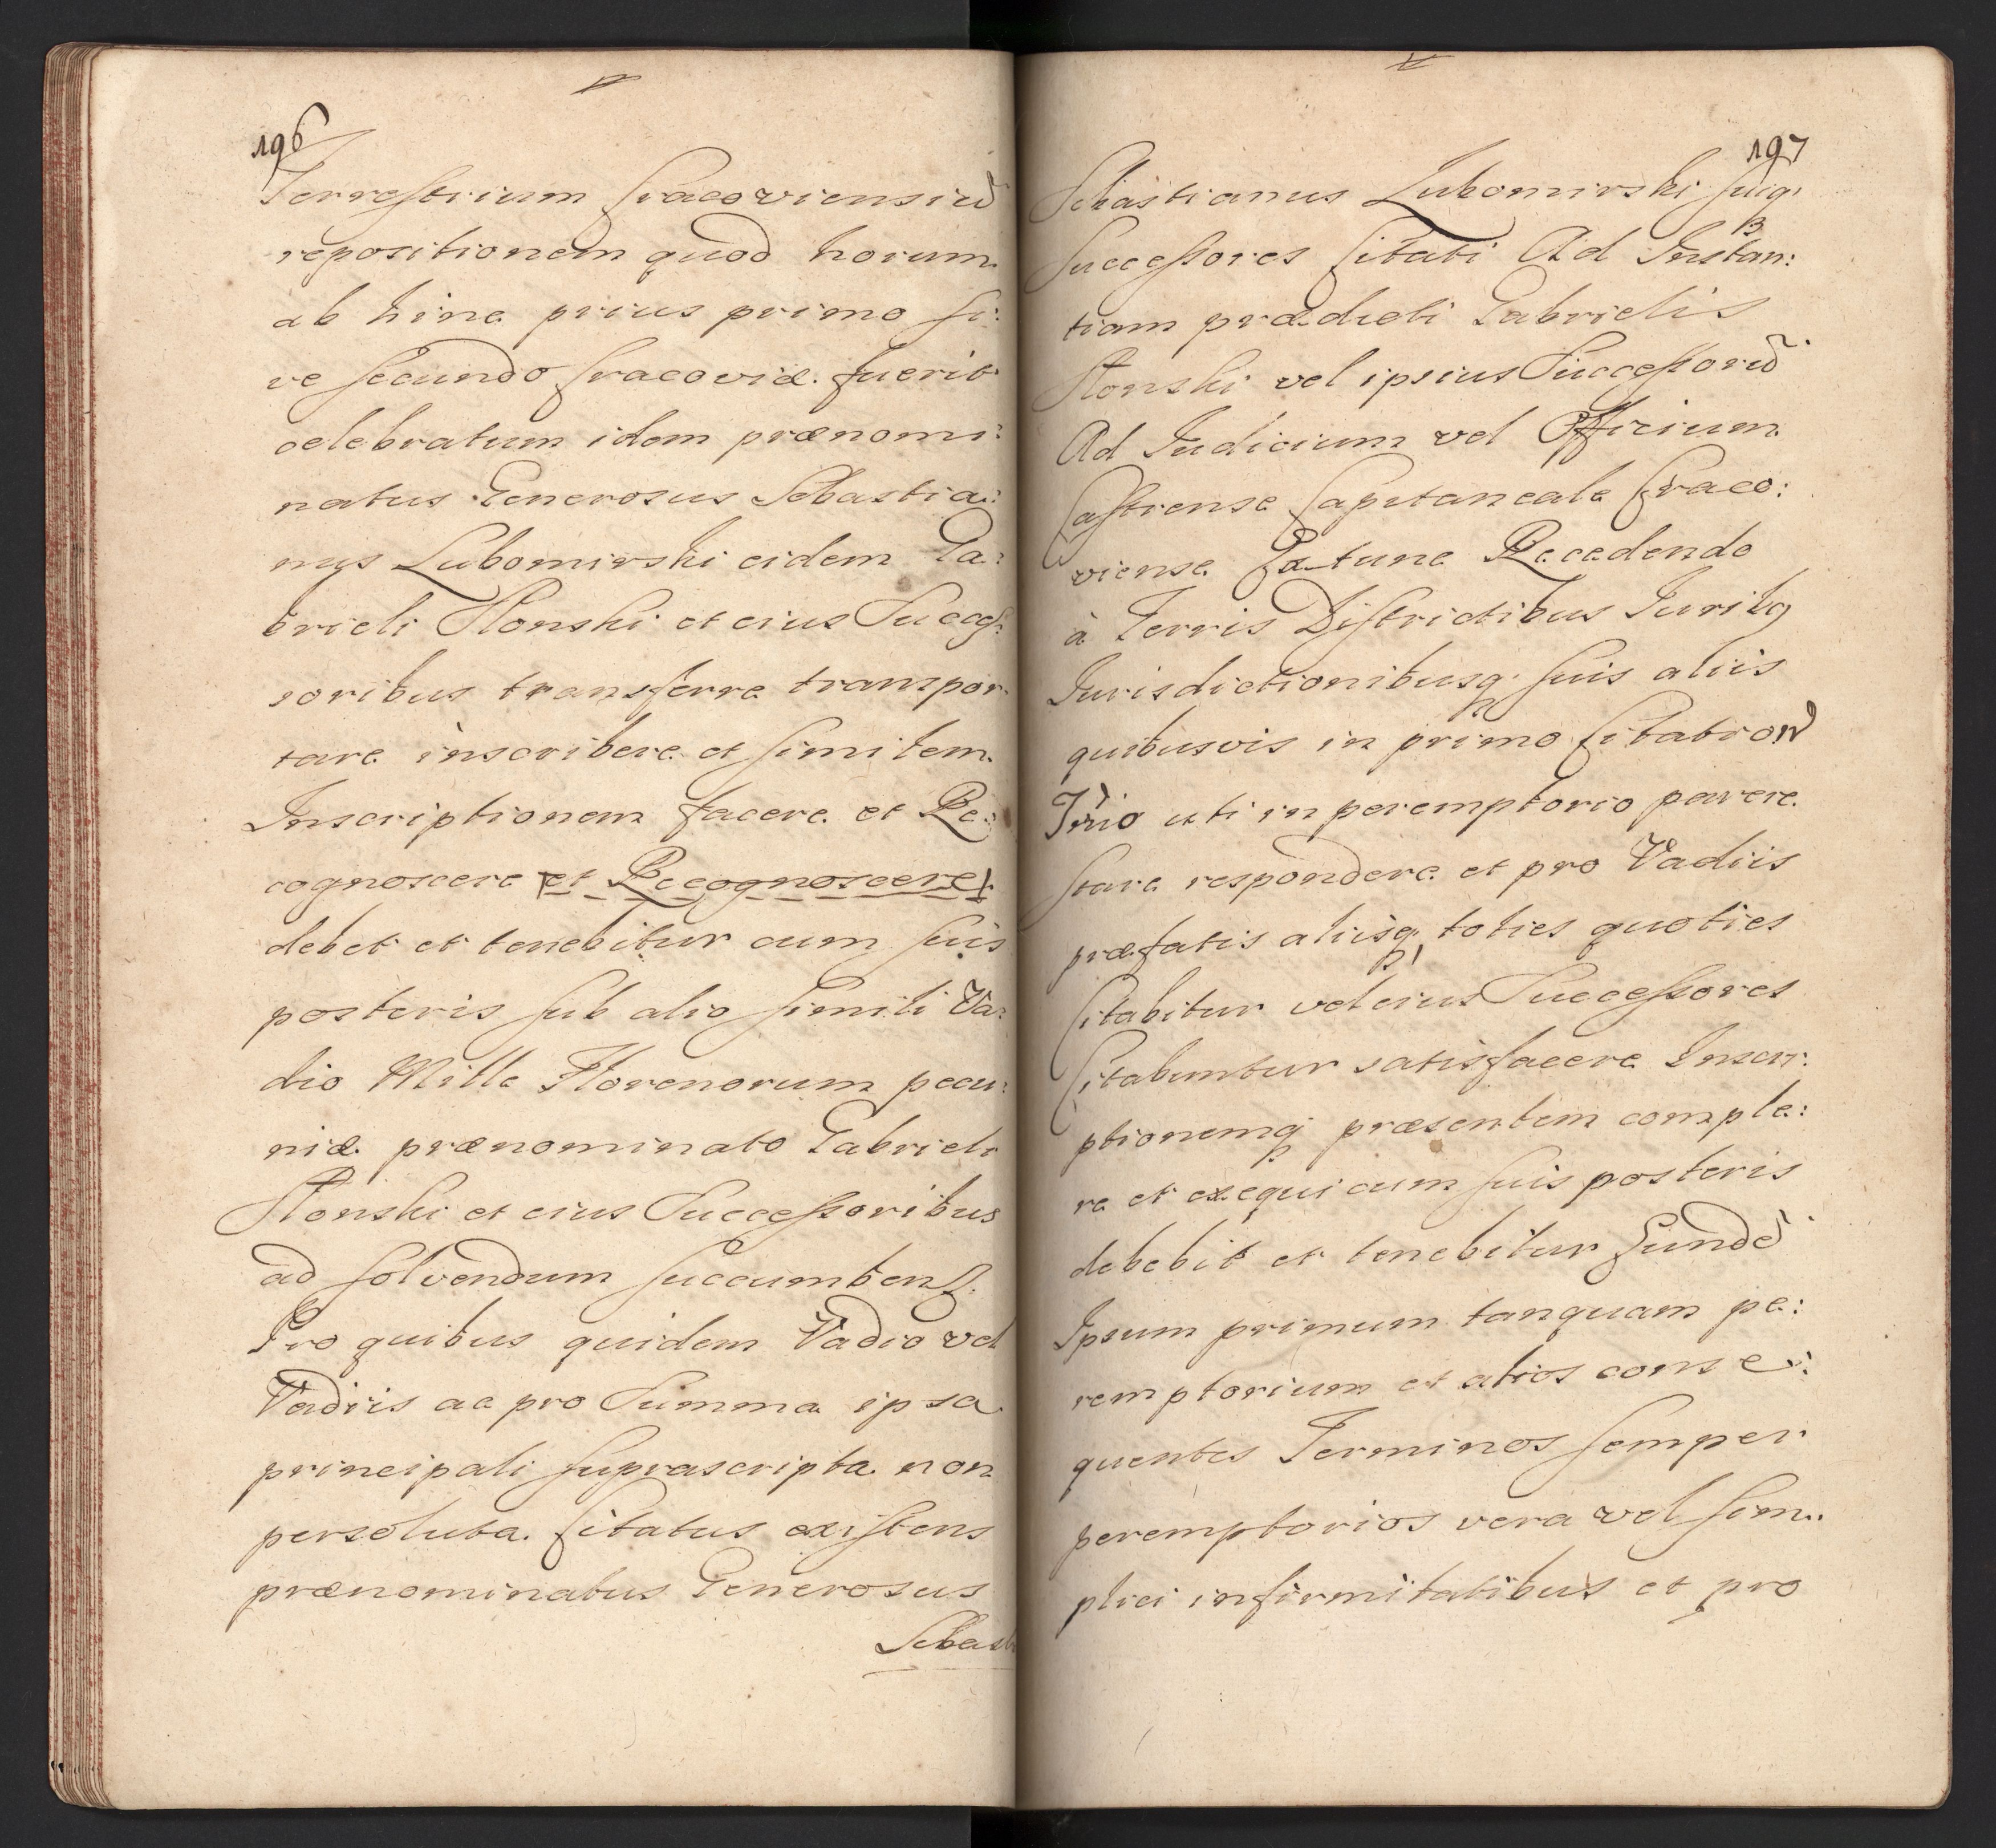 196
Terrestrium Cracoviensiũ
repositionem quod horum
ab hinc prius primo si:
ve secundo Cracoviæ fuerit
celebratum idem prænomi:
natus Generosus Sebastia:
nus Lubomirski eidem Ga:
brieli Słonski et eius Succes:
soribus transferre transpor:
tare inscribere et similem
Inscriptionem facere et Re:
cognoscere et Recognoscere
debet et tenebitur cum suis
posteris sub alio simili Va:
dio Mille Florenorum pecu:
niæ prænominato Gabrieli
Słonski et eius Successoribus
ad solvendum succumbens.
Pro quibus quidem Vadio vel
Vadiis ac pro Summa ipsa
principali suprascripta non
persoluta Citatus existens
prænominatus Generosus
Sebasti
197
Sebastianus Lubomirski suiq;
Successores Citati Ad Instan:
tiam prædicti Gabrielis
Słonski vel ipsius Successorũ
Ad Iudicium vel Officium
Castrense Capitaneale Craco:
viense Extunc Recedendo
à Terris Districtibus Iuribq
Iurisdictionibusq; suis aliis
quibusvis in primo Citationĩ
Tr̃io uti in peremptorio parere
stare respondere et pro Vadiis
præfatis aliisq; toties quoties
Citabitur vel eius Successores
Citabuntur satisfacere Inscri:
ptionemq; præsentem comple:
re et exequi cum suis posteris
debebit et tenebitur Eundẽ
Ipsum primum tanquam pe:
remptorium et alios conse:
quentes Terminos semper
peremptorios vera vel sim:
plici infirmitatibus et pro